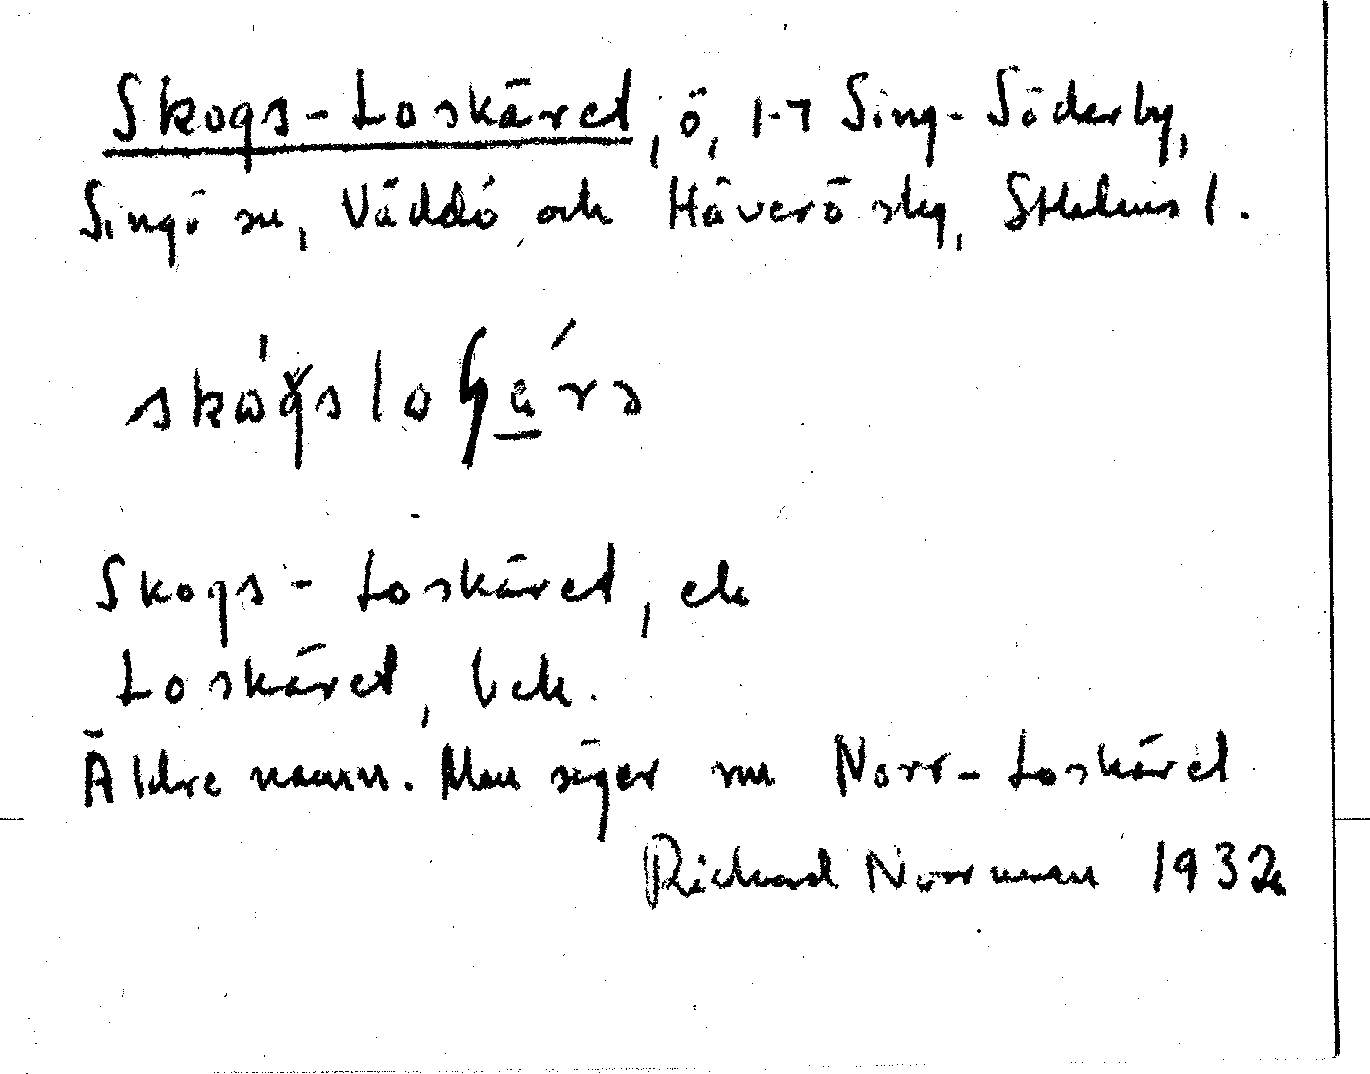 Skogs-Loskäret, ö, 1-7 Sing-Söderby,
Singö sn, Väddö och Häverö skg, Sthlms l.
Skogs-Loskäret, ek
Loskäret, bek.
Äldre namn. Man säger nu Norr-Loskäret
Rickard Norrman 1932